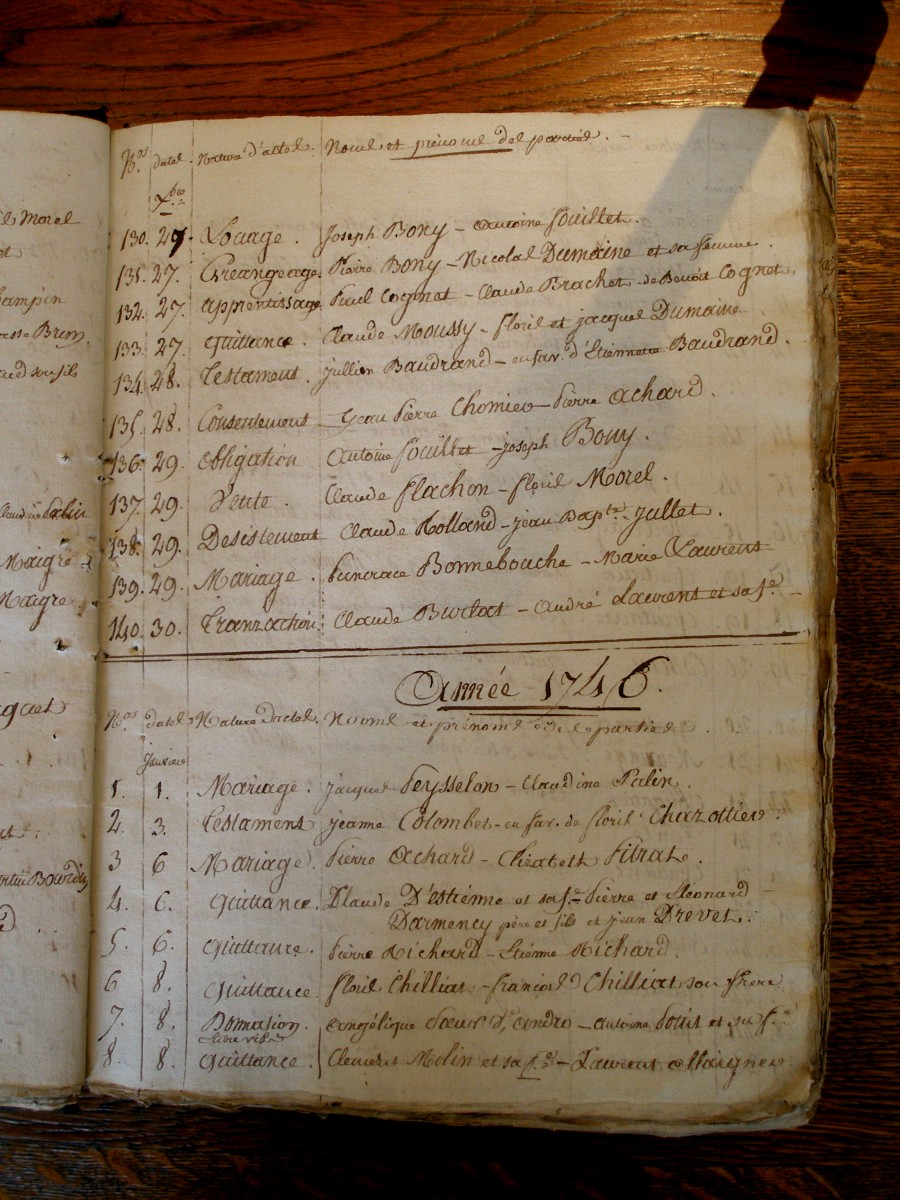 l Morel
ampin
asse Brun
et son fils
Maigre
Maigre
guet
N.os datel. Nature d'actel. Noml et prénoml del partiel.
Xbre
130. 27. Louage. Joseph Bony - Antoine Souillet.
131. 27. Pierre Bony - Nicolal Dumaine et sa femme.
132. 27. Apprentissage Paul Cognet - Claude Brachet - de Benoit Cognet.
133. 27. Quittance. Claude Moussy - floril et jacquel Dumaine
134. 28. Testament. jullien Baudrand - en fav. d'Etiennette Baudrand.
135. 28. Consentement Jean Pierre Chomier - Pierre Achard.
136. 29. Obligation Antoine Souillet - joseph Bony.
137. 29. Vente. Claude Flachon - floril Morel.
138. 29. Desistement Claude Holland - jean Bapte. jullet.
139. 29. Mariage. Puncrace Bonnebouche - Marie Laurent
140. 30. Tranzaction. Claude Burlat - André Laurent et sa fe.
Année 1746.
N.os datel. Nature d'actel. Noml et prénoml de partiel.
Janvier
1. 1. Mariage. jacquel Peysselon - Claudine Palin.
2. 3. Testament jeanne Colombet - en fav. de floril Chazottier.
3 6 Mariage. Pierre Achard - Elizabeth Pitrat.
4. 6. Quittance. Claude D'estienne et sa fe. Pierre et Léonard
Darmency père et fils et jean Drevet.
5. 6. Quittance. Pierre Richard - Etienne Richard.
6 8. Quittance. floril Chilliat - françoil Chilliat son frère
7. 8. Donnation. Angélique Sœur St. André - Antoine et sa fe.
entre vifs
8. 8. Quittance. Clement Molin et sa fe. - Laurent Maigner